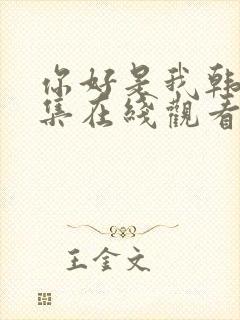 你好是我韩
集在线观看
王金文